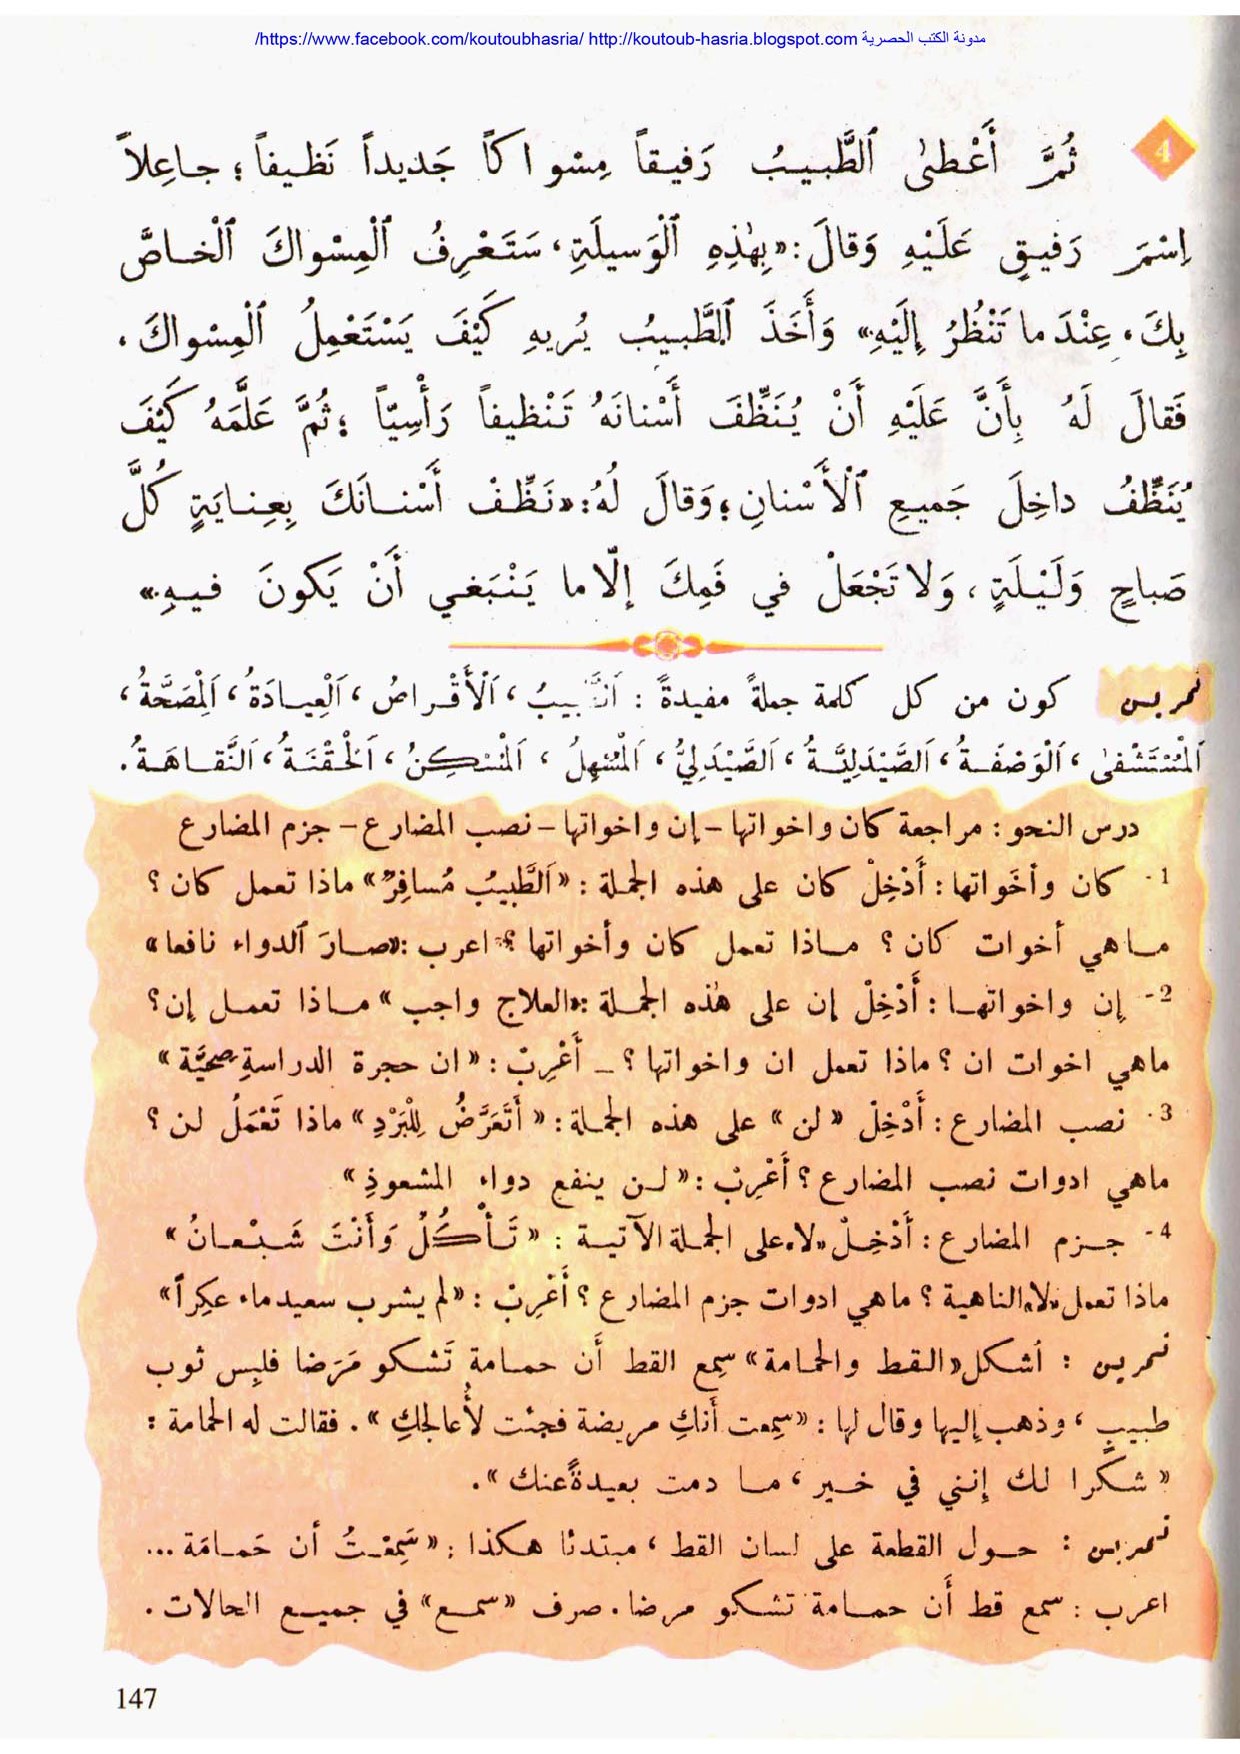 https://www.facebook.com/koutoubhasria/ http://koutoub-hasria.blogspot.com مدونة الكتب الحصرية/
4
ثُمَّ أَعْطىٰ ٱلطَّبيبُ رَفيقاً مِسْواكاً جَديداً نَظيفاً ؛ جاعِلاً
اِسْمَ رَفيقٍ عَلَيْهِ وَقالَ : «بِهٰذِهِ ٱلْوَسيلَةِ، سَتَعْرِفُ ٱلْمِسْواكَ ٱلْخاصَّ
بِكَ، عِنْدَما تَنْظُرُ إِلَيْهِ.» وَأَخَذَ ٱلطَّبيبُ يُريهِ كَيْفَ يَسْتَعْمِلُ ٱلْمِسْواكَ،
فَقالَ لَهُ بِأَنَّ عَلَيْهِ أَنْ يُنَظِّفَ أَسْنانَهُ تَنْظيفاً رَأْسِيّاً ؛ ثُمَّ عَلَّمَهُ كَيْفَ
يُنَظِّفُ داخِلَ جَميعِ ٱلْأَسْنانِ ؛ وَقالَ لَهُ : «نَظِّفْ أَسْنانَكَ بِعِنايَةٍ كُلَّ
صَباحٍ وَلَيْلَةٍ، وَلا تَجْعَلْ في فَمِكَ إِلّا ما يَنْبَغي أَنْ يَكونَ فيهِ.»
تمرين كون من كل كلمة جملةً مفيدةً : اَلطَّبيبُ، اَلْأَقْراصُ، اَلْعِيادَةُ، اَلْمِصَحَّةُ،
اَلْمُسْتَشْفىٰ، اَلْوَصْفَةُ، اَلصَّيْدَلِيَّةُ، اَلصَّيْدَلِيُّ، اَلْمُسْهِلُ، اَلْمُسَكِّنُ، اَلْحُقْنَةُ، اَلنَّقاهَةُ.
درس النحو : مراجعة كان واخواتها - إن واخواتها - نصب المضارع - جزم المضارع
1 - كان وأخَواتها : أَدْخِلْ كان على هذه الجملة : «اَلطَّبيبُ مُسافِرٌ» ماذا تعمل كان ؟
ماهي أخوات كان ؟ ماذا تعمل كان وأخواتها ؟ اعرب : «صارَ ٱلدواء نافعا»
2 - إن واخواتها : أَدْخِلْ إن على هٰذه الجملة : «العلاج واجب» ماذا تعمل إن؟
ماهي اخوات ان ؟ ماذا تعمل ان واخواتها ؟ - أَعْرِبْ : «ان حجرة الدراسةِ صحيَّة»
3 - نصب المضارع : أَدْخِلْ «لن» على هذه الجملة : «أَتَعَرَّضُ لِلْبَرْدِ» ماذا تَعْمَلُ لن ؟
ماهي ادوات نصب المضارع ؟ أَعْرِبْ : «لن ينفع دواء المشعوذِ»
4 - جزم المضارع : أَدْخِلْ «لا» على الجملة الآتية : «تَأْكُلُ وَأَنْتَ شَبْعانُ»
ماذا تعمل «لا» الناهية ؟ ماهي ادوات جزم المضارع ؟ أَعْرِبْ : «لم يشرب سعيد ماء عكِراً»
تمرين : اُشكل «القط والحمامة» سمِع القط أَن حمامة تَشكو مَرَضا فلبِس ثوب
طبيبٍ، وذهب إليها وقال لها : «سمِعت أَنكِ مريضة فجئت لأُعالجكِ». فقالت له الحمامة :
«شكرا لك إنني في خير، ما دمت بعيدةً عنك».
تمرين : حول القطعة على لسان القط، مبتدئا هكذا : «سَمِعْتُ أن حَمامَة ...
اعرب : سمع قط أَن حمامة تشكو مرضا. صرف «سمع» في جميع الحالات.
147